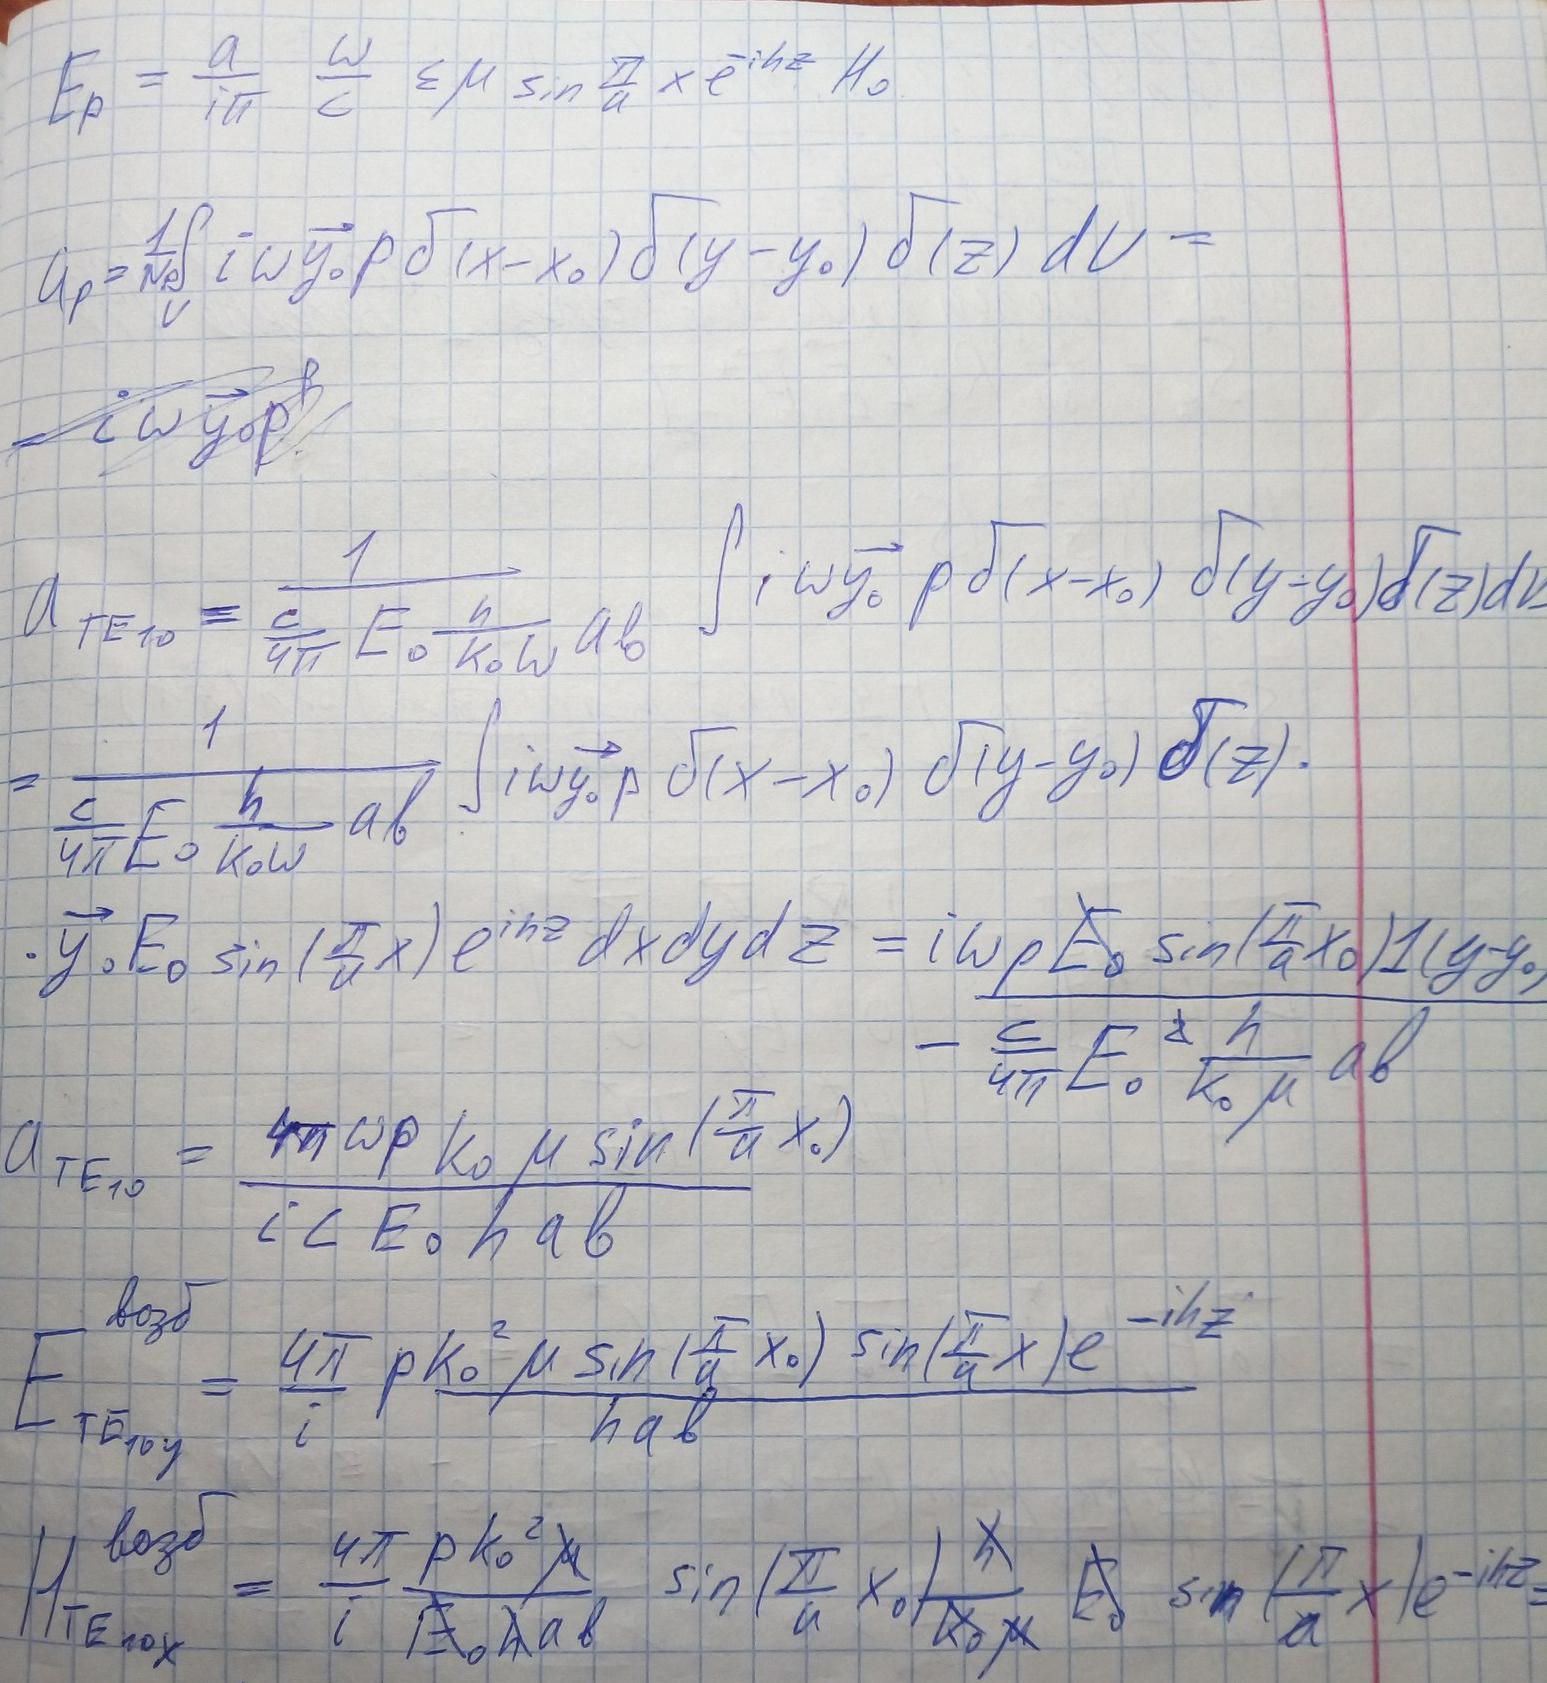 E_p = a/(iπ) ω/c εμ sin π/a x e^{-ihz} H_0
a_p = 1/N_p ∫_V iω\vec{y_0} p δ(x-x_0) δ(y-y_0) δ(z) dV =
= iω\vec{y_0}p
a_{TE_{10}} = 1/(c/4π E_0 h/(k_0ω) ab) ∫ iω\vec{y_0} p δ(x-x_0) δ(y-y_0) δ(z) dV
= 1/(c/4π E_0 h/(k_0ω) ab) ∫ iω\vec{y_0} p δ(x-x_0) δ(y-y_0) δ(z) ·
· \vec{y_0} E_0 sin(π/a x) e^{ihz} dx dy dz = iωp E_0 sin(π/a x_0) 1(y-y_0) / (- c/4π E_0^2 h/(k_0μ) ab)
a_{TE_{10}} = 4π ωp k_0 μ sin(π/a x_0) / (i c E_0 h a b)
E^{возб}_{TE_{10y}} = 4π/i p k_0^2 μ sin(π/a x_0) sin(π/a x) e^{-ihz} / (h a b)
H^{возб}_{TE_{10x}} = 4π/i p k_0^2 μ / (E_0 h a b) sin(π/a x_0) h/(k_0 μ) E_0 sin(π/a x) e^{-ihz} =